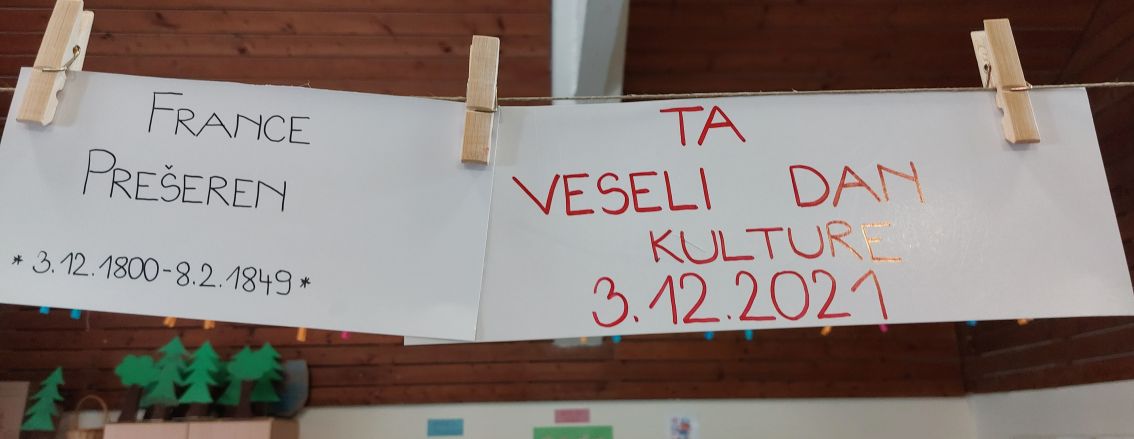 FRANCE
PREŠEREN
* 3.12.1800-8.2.1849 *
TA
VESELI DAN
KULTURE
3.12.2021